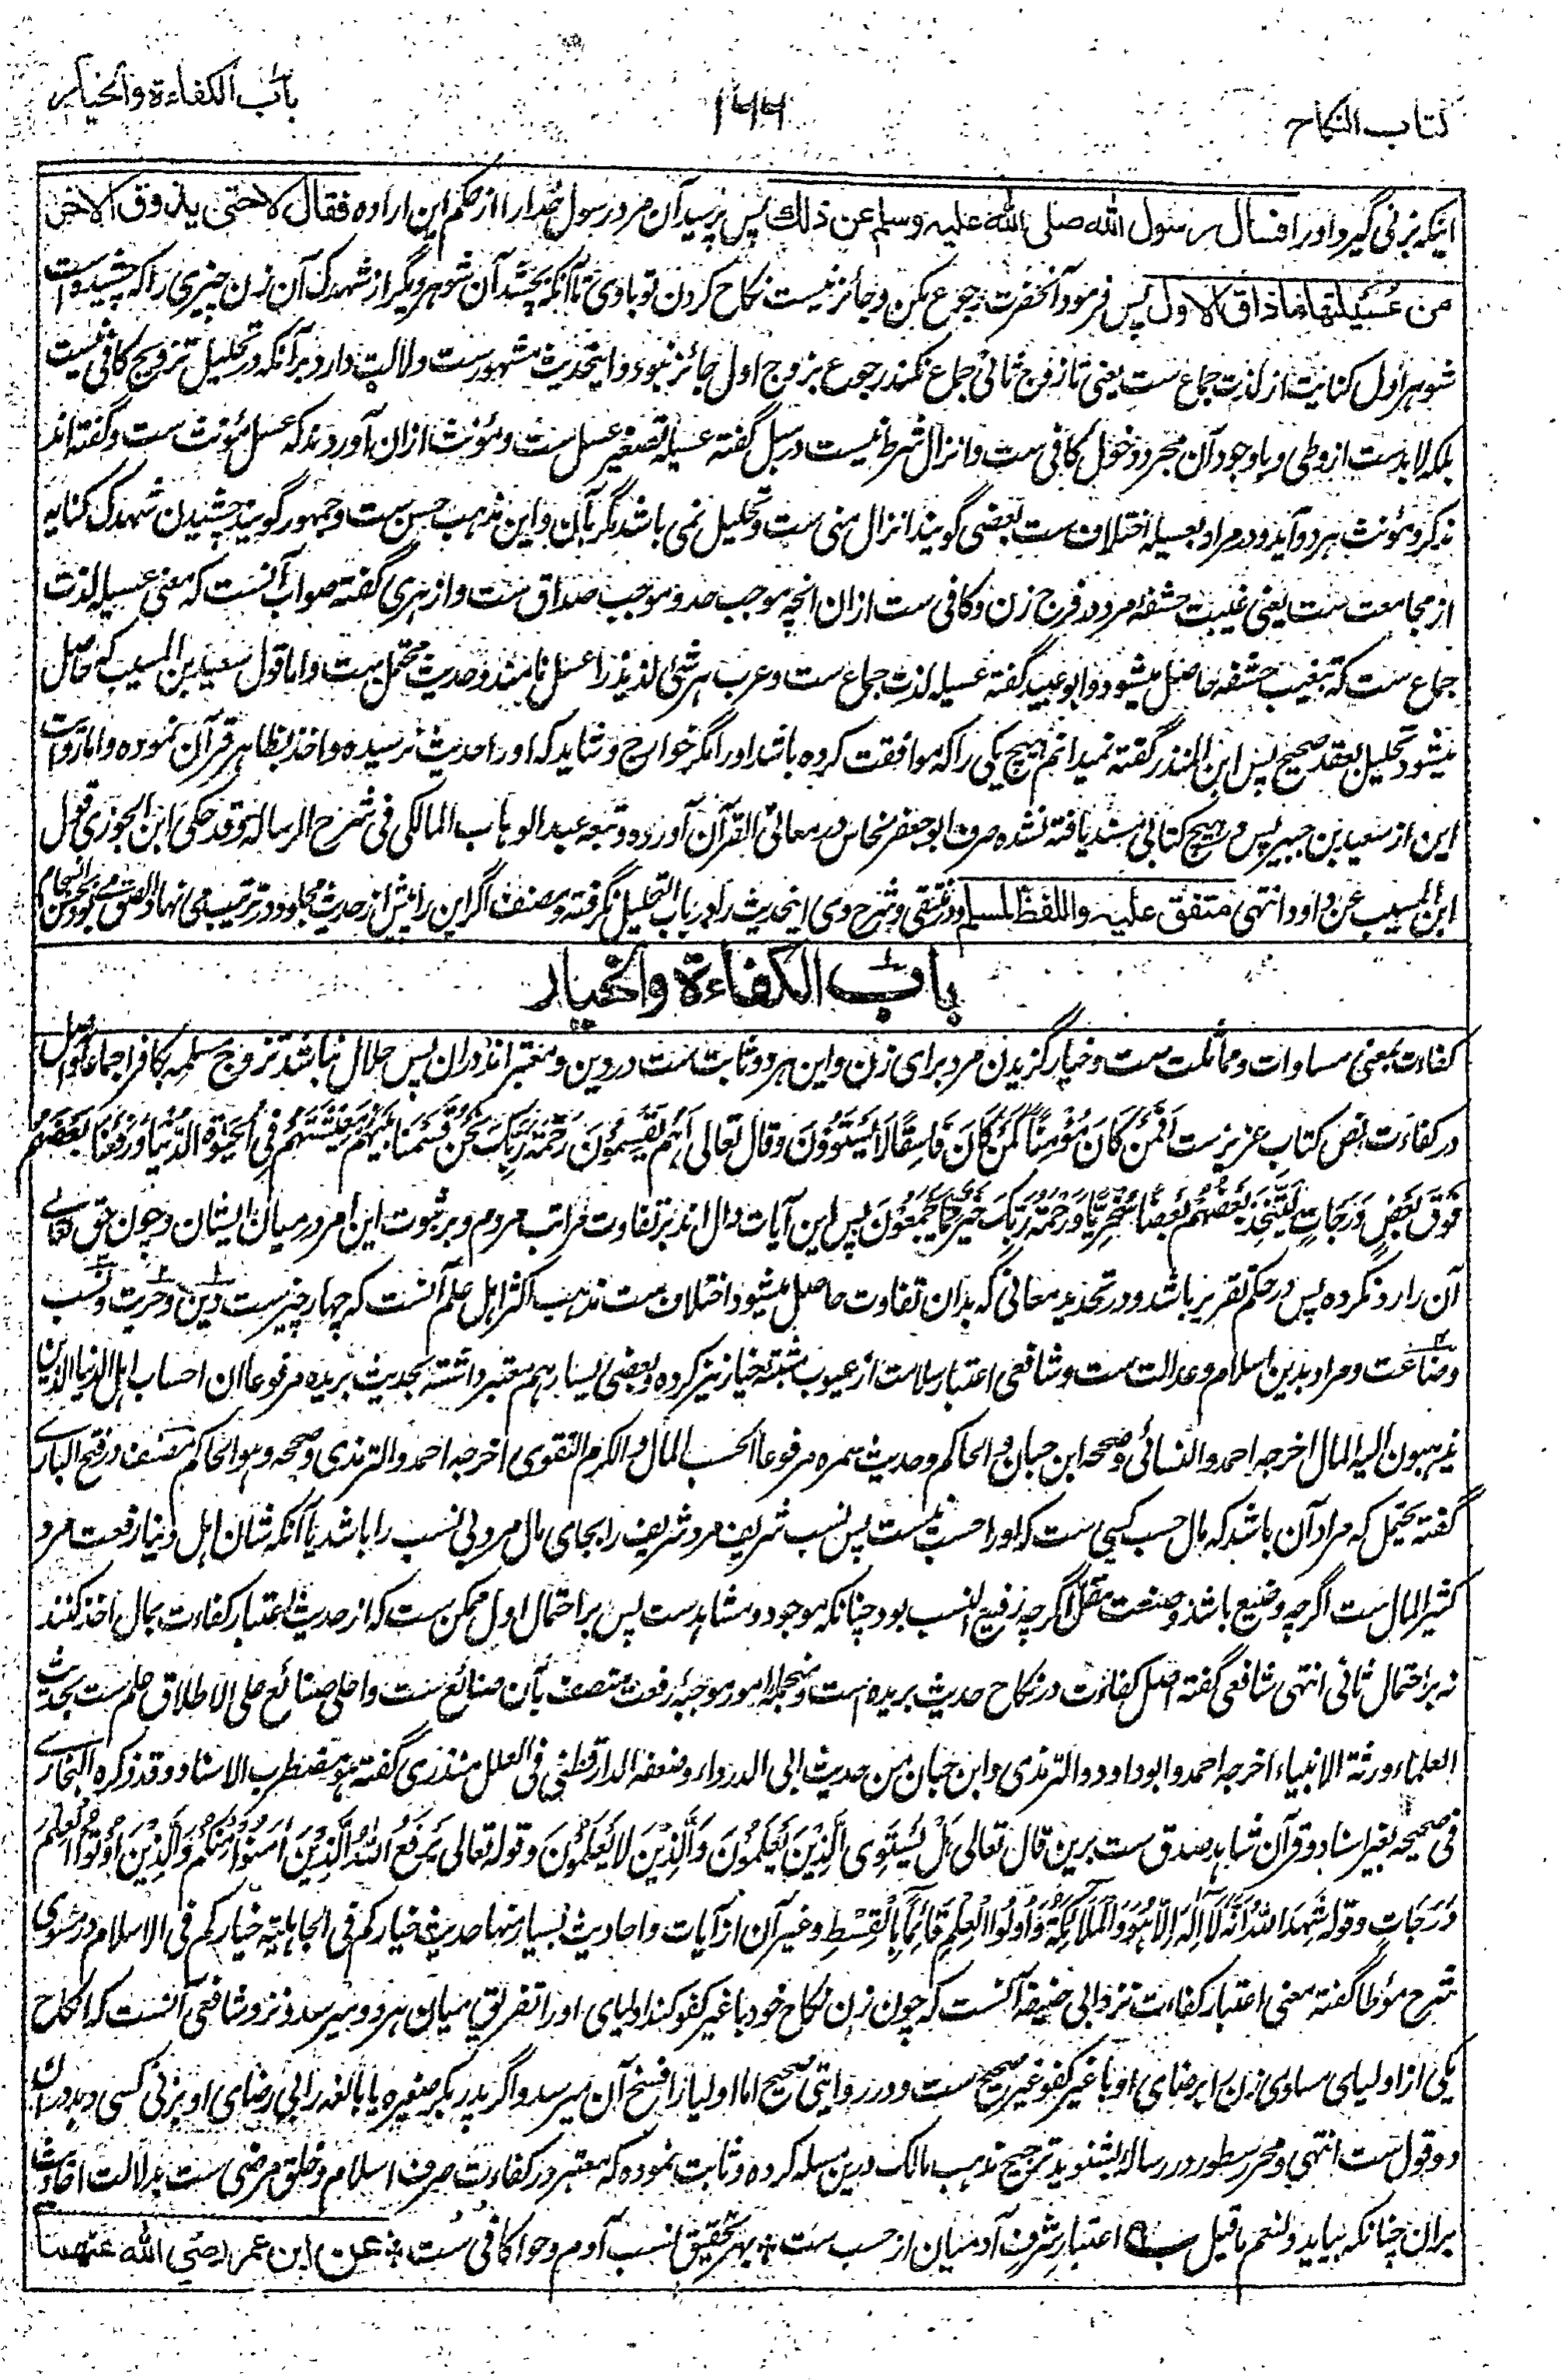 کتاب النکاح
۱۴۴
باب الکفاءة والخیار
اینکه بزنی گیرد اورا فسال رسول الله صلی الله علیه وسلم عن ذلك پس پرسید آن مرد رسول خدا را از حکم این اراده فقال لا حتی یذوق الآخر
من عسیلتها ما ذاق الاول پس فرمود آنحضرت رجوع مکن و جائز نیست نکاح کردن تو با وی تا آنکه بچشد آن شوهر دیگر از شهدک آن زن چیزی را که چشیده است
شوهر اول کنایت از لذت جماع ست یعنی تا زوج ثانی جماع نکند رجوع بزوج اول جائز نبود و اینحدیث مشهورست و دلالت دارد بر آنکه در تحلیل تزویج کافی نیست
بلکه لا بدست از وطی و با وجود آن مجرد دخول کافی ست و انزال شرط نیست در سبل گفته عسیله تصغیر عسل ست و مؤنث ازان آوردند که عسل مؤنث ست و گفته اند
مذکر و مؤنث هر دو آید و در مراد بعسیله اختلاف ست بعضی گویند انزال منی ست و تحلیل نمی باشد مگر بآن و این مذهب حسن ست و جمهور گویند چشیدن شهدک کنایه
از مجامعت ست یعنی غیبت حشفه مرد در فرج زن و کافی ست ازان انچه موجب حد و موجب صداق ست و ازهری گفته صواب آنست که معنی عسیله لذت
جماع ست که بتغییب حشفه حاصل میشود و ابو عبید گفته عسیله لذت جماع ست و عرب هر شئ لذیذ را عسل نامند و حدیث محتمل ست و اما قول سعید بن المسیب که حاصل
میشود تحلیل بعقد صحیح پس ابن المنذر گفته نمیدانم هیچ یکی را که موافقت کرده باشد اورا مگر خوارج و شاید که اورا حدیث نرسیده و اخذ بظاهر قرآن نموده و اما روایت
این از سعید بن جبیر پس در هیچ کتابی مسند یافته نشده صرف ابو جعفر نحاس در معانی القرآن آورده و تبعه عبد الوهاب المالکی فی شرح الرساله و قد حکی ابن الجوزی قول
ابن المسیب عن داود انتهی متفق علیه واللفظ لمسلم و در منتقی و شرح وی اینحدیث را در باب التحلیل نگرفته و مصنف اگر این را پیش از حدیث محلل و در ترتیب می نهاد الصق
باب الکفاءة والخیار
کفاءت بمعنی مساوات و مماثلت ست و خیار گزیدن مرد برای زن و این هر دو ثابت ست در دین و معتبر اند دران پس حلال نباشد تزوج مسلمه بکافر اجماعا و اصل
در کفاءت نص کتاب عزیزست اَفَمَنْ کَانَ مُؤْمِنًا کَمَنْ کَانَ فَاسِقًا لَا یَسْتَوُوْنَ وقال تعالی اَهُمْ یَقْسِمُوْنَ رَحْمَةَ رَبِّکَ نَحْنُ قَسَمْنَا بَیْنَهُمْ مَعِیْشَتَهُمْ فِی الْحَیٰوةِ الدُّنْیَا وَرَفَعْنَا بَعْضَهُمْ
فَوْقَ بَعْضٍ دَرَجَاتٍ لِیَتَّخِذَ بَعْضُهُمْ بَعْضًا سُخْرِیًّا وَرَحْمَةُ رَبِّکَ خَیْرٌ مِمَّا یَجْمَعُوْنَ پس این آیات دال اند بر تفاوت مراتب مردم و بر ثبوت این امر در میان ایشان و چون حق تعالی
آن را رد نکرده پس در حکم تقریر باشد و در تحدید معانی که بدان تفاوت حاصل میشود اختلاف ست مذهب اکثر اهل علم آنست که چهار چیزست دین و حریت و نسب
و صناعت و مراد بدین اسلام و عدالت ست و شافعی اعتبار سلامت از عیوب مثبته خیار نیز کرده و بعضی یسار هم معتبر داشته بحدیث بریده مرفوعا ان احساب اهل الدنیا الذین
یذهبون الیه المال اخرجه احمد و النسائی و صححه ابن حبان و الحاکم و حدیث سمره مرفوعا الحسب المال و الکرم التقوی اخرجه احمد و الترمذی و صححه هو و الحاکم مصنف در فتح الباری
گفته یحتمل که مراد آن باشد که مال حسب کسی ست که اورا حسب نیست پس نسب شریف مرد شریف را بجای مال مرد بی نسب را باشد یا آنکه شان اهل دنیا رفعت مرد
کثیر المال ست اگرچه وضیع باشد و ضعت مقل اگرچه رفیع النسب بود چنانکه موجود و مشاهدست پس بر احتمال اول ممکن ست که از حدیث اعتبار کفاءت بمال اخذ کنند
نه بر احتمال ثانی انتهی شافعی گفته اصل کفاءت در نکاح حدیث بریره است و منجمله امور موجبه رفعت متصف بآن صنائع ست و اعلی صنائع علی الاطلاق علم ست بحدیث
العلماء ورثة الانبیاء اخرجه احمد و ابو داود و الترمذی و ابن حبان من حدیث ابی الدرداء و ضعفه الدارقطنی فی العلل منذری گفته هو مضطرب الاسناد و قد ذکره البخاری
فی صحیحه بغیر اسناد و قرآن شاهد صدق ست برین قال تعالی هَلْ یَسْتَوِی الَّذِیْنَ یَعْلَمُوْنَ وَالَّذِیْنَ لَا یَعْلَمُوْنَ وقوله تعالی یَرْفَعِ اللّٰهُ الَّذِیْنَ اٰمَنُوْا مِنْکُمْ وَالَّذِیْنَ اُوْتُوا الْعِلْمَ
دَرَجَاتٍ وقوله شَهِدَ اللّٰهُ اَنَّهٗ لَا اِلٰهَ اِلَّا هُوَ وَالْمَلٰٓئِکَةُ وَاُولُوا الْعِلْمِ قَائِمًا بِالْقِسْطِ و غیر آن از آیات و احادیث بسیار منها حدیث خیارکم فی الجاهلیة خیارکم فی الاسلام در مسوی
شرح مؤطا گفته معنی اعتبار کفاءت نزد ابی حنیفه آنست که چون زن نکاح خود با غیر کفو کند اولیای اورا تفریق میان هر دو میرسد و نزد شافعی آنست که انکاح
یکی از اولیای مساوی زن را برضای او با غیر کفو غیر صحیح ست و در روایتی صحیح اما اولیا را فسخ آن میرسد و اگر پدر بکر صغیره یا بالغه را بی رضای او بزنی کسی دهد دران
دو قول ست انتهی و محرر سطور در رساله بشنوید ترجیح مذهب مالک درین مسله کرده و ثابت نموده که معتبر در کفاءت صرف اسلام و خلق مرضی ست بدلالت احادیث
بران چنانکه بیاید و لنعم ما قیل اعتبار شرف آدمیان از حسب ست بهر تحقیق نسب آدم و حوا کافی ست عن ابن عمر رضی الله عنهما